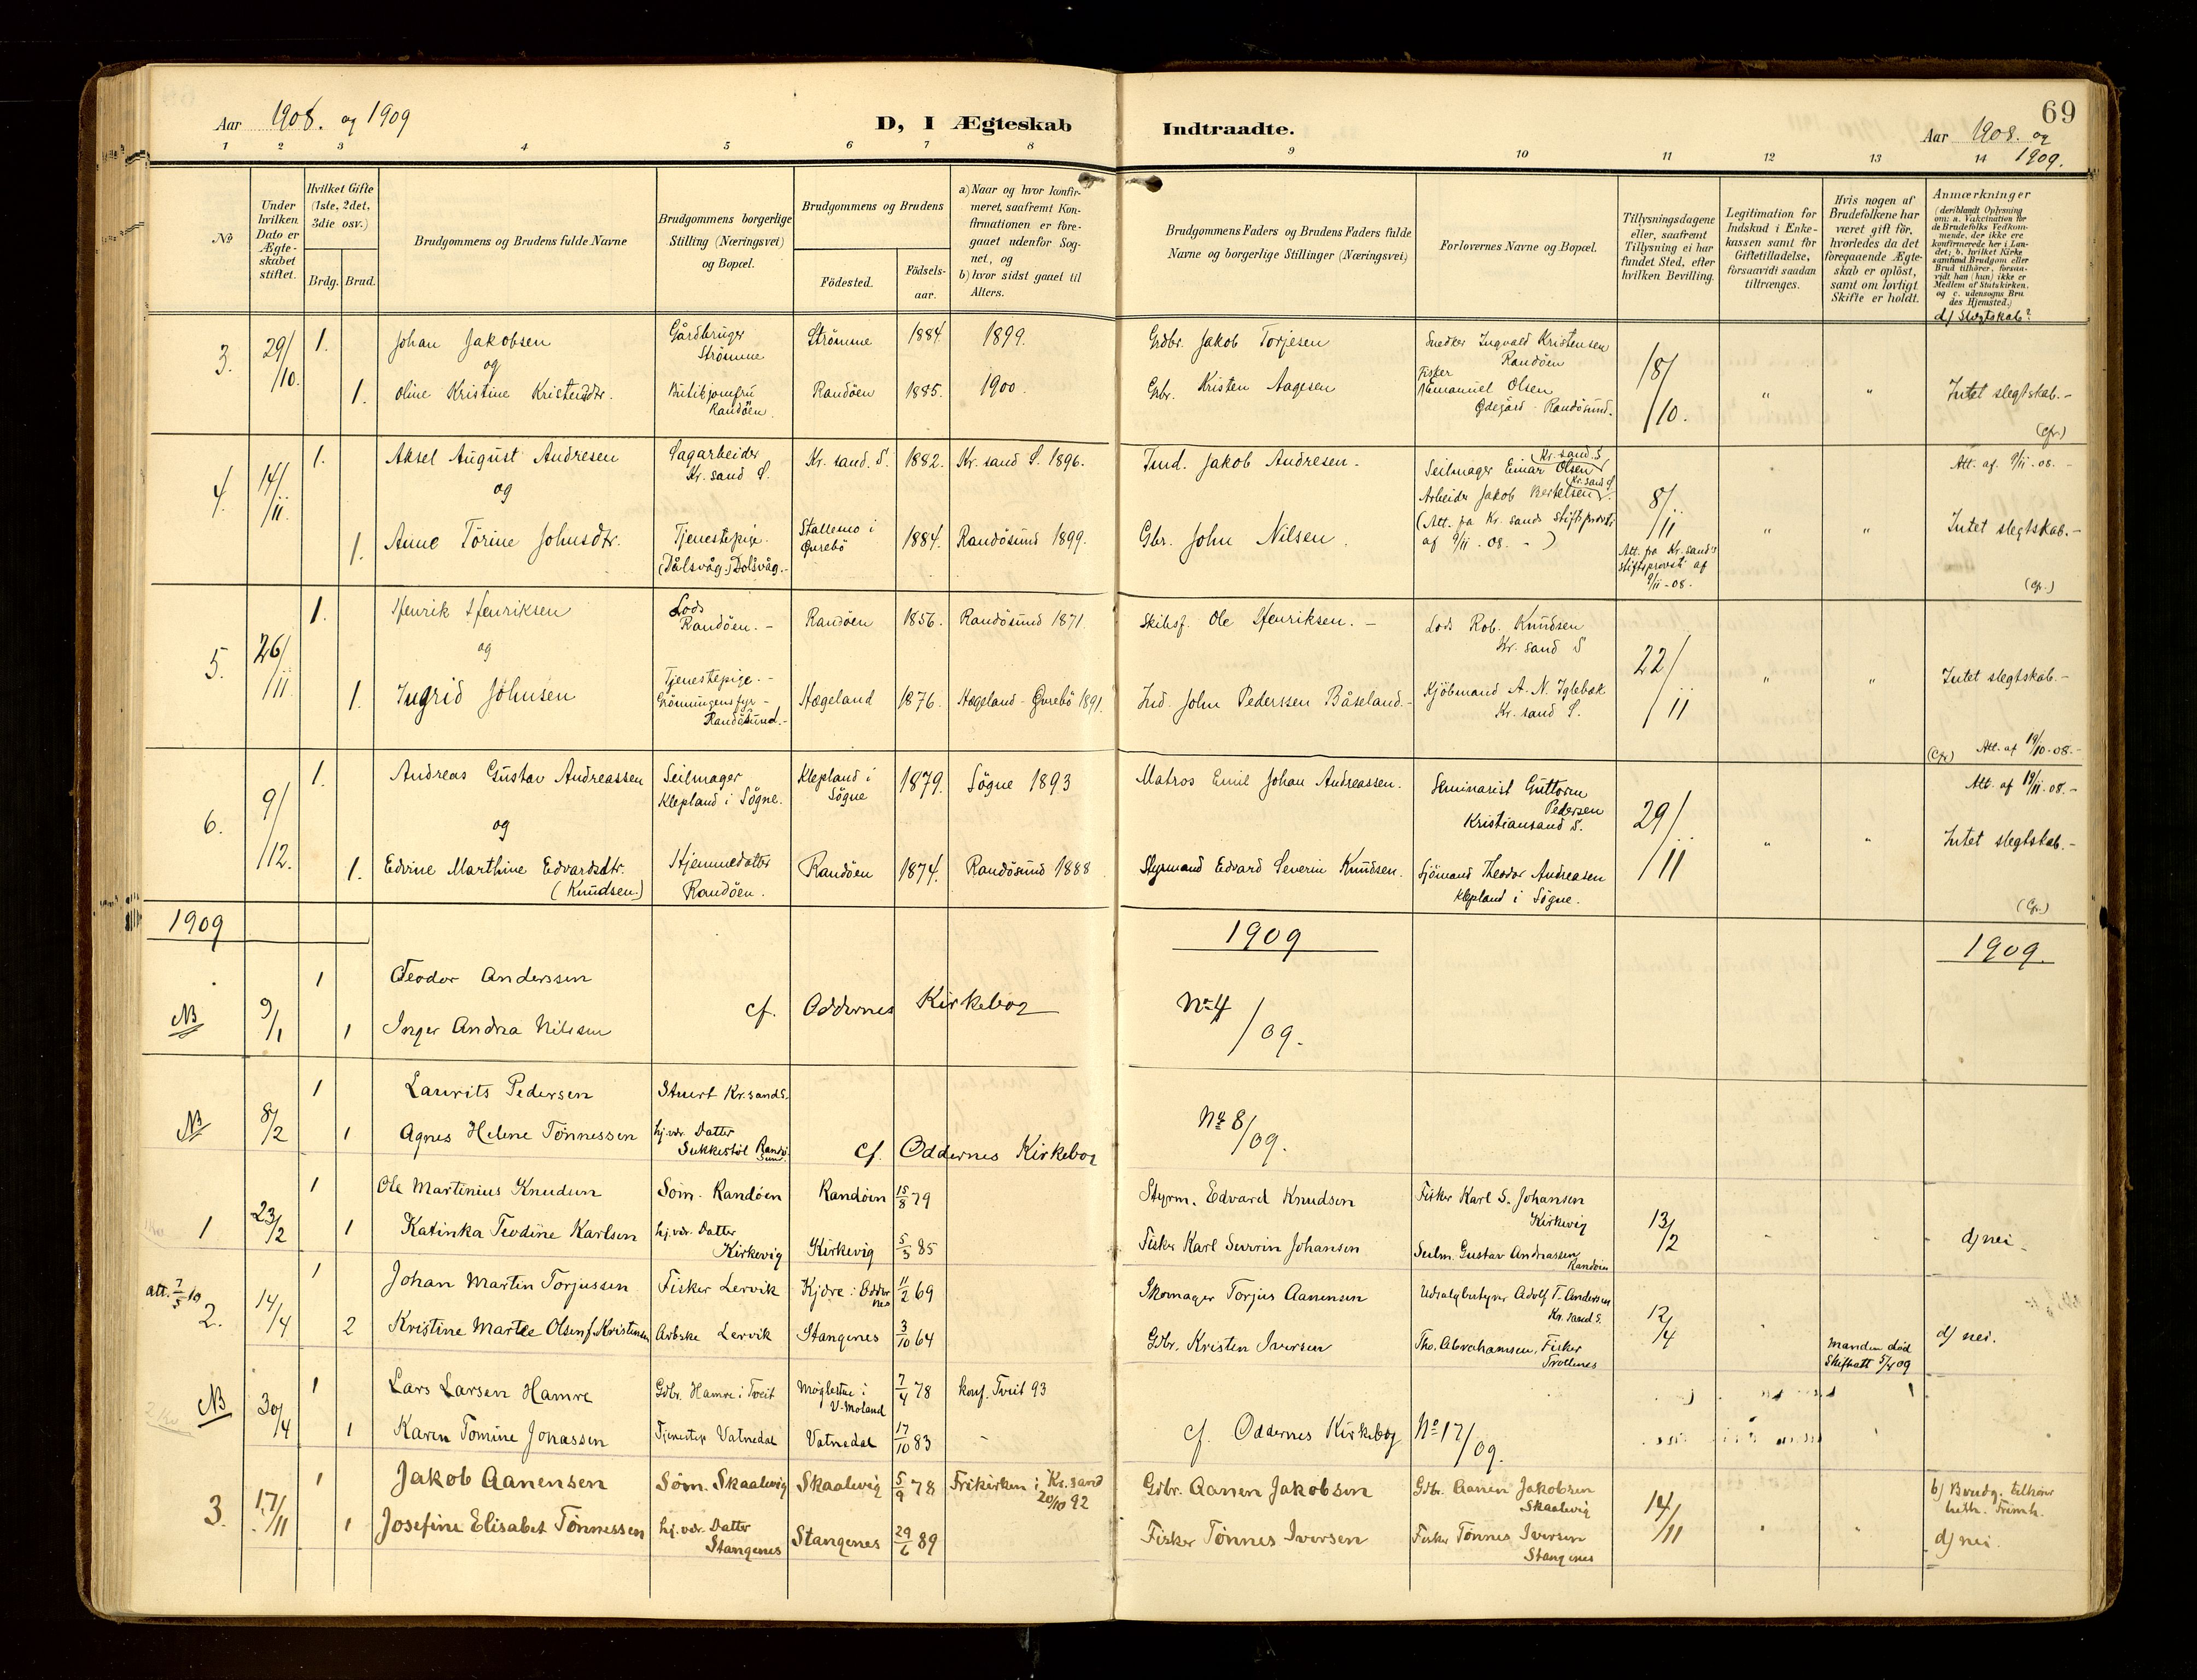 69
Aar 1908. og 1909
D, I Ægteskab Indtraadte.
Aar 1908. og 1909.
1 2 3 4 5 6 7 8 9 10 11 12 13 14
No
Under hvilken Dato er Ægteskabet stiftet.
Hvilket Gifte (1ste, 2det, 3die osv.)
Brdg. Brud.
Brudgommens og Brudens fulde Navne
Brudgommens borgerlige Stilling (Næringsvei) og Bopæl.
Brudgommens og Brudens
Födested.
Födselsaar.
a) Naar og hvor konfirmeret, saafremt Konfirmationen er foregaaet udenfor Sognet, og
b) hvor sidst gaaet til Alters.
Brudgommens Faders og Brudens Faders fulde Navne og borgerlige Stillinger (Næringsvei)
Forlovernes Navne og Bopæl.
Tillysningsdagene eller, saafremt Tillysning ei har fundet Sted, efter hvilken Bevilling.
Legitimation for Indskud i Enkekassen samt for Giftetilladelse, forsaavidt saadan tiltrænges.
Hvis nogen af Brudefolkene har været gift för, hvorledes da det foregaaende Ægteskab er oplöst, samt om lovligt Skifte er holdt.
Anmærkninger
(deriblandt Oplysning om: a. Vakcination for de Brudefolks Vedkommende, der ikke ere konfirmerede her i Landet; b. hvilket Kirkesamfund Brudgom eller Brud tilhörer, forsaavidt han (hun) ikke er Medlem af Statskirken, og c. udensogns Brudes Hjemsted.)
d) Slegtskab?
3. 29/10. 1. Johan Jakobsen Gårdbruger Strömme Strömme 1884. 1899. Grdbr. Jakob Torjesen Snedker Ingvald Kristensen Randöen 18/10.
og
1. Oline Kristine Kristensdtr. Butikjomfru Randöen. Randöen 1885. 1900. Gbr. Kristen Aagesen Fisker Emanuel Olsen Ödegård - Randösund. " " Intet slegtskab. -
4. 14/11. 1. Aksel August Andresen Sagarbeider Kr. sand S. Kr. sand. S. 1882. Kr. sand S. 1896. Jakob Andresen. Seilmager Einar Olsen Kr. sand. S Arbeider Jakob Bertelsen Kr. sand S (Att. fra Kr. sands stiftsprovsti af 9/11 - 08. -) 8/11 Att. af. 9/11 - 08. -
og
1. Anne Torine Johnsdtr. Tjenestepige. (Dålsvåg.) Dolsvåg. - Stallemo i Övrebö 1884. Randösund 1899. Gbr. John Nilsen. Att. fra Kr. sand's stiftsprovsti af 9/11 - 08. " " Intet slegtskab. -
5. 26/11. 1. Henrik Henriksen Lods Randöen. - Randöen 1856. Randösund 1871. Skibsf. Ole Henriksen. - Lods Rob. Knudsen Kr. sand S 22/11
og
1. Ingrid Johnsen Tjenestepige. - Grönningens fyr - Randösund. - Hægeland 1876. Hægeland - Övrebö 1891. Ind. John Pederssen Båseland. - Kjöbmand A. N. Iglebæk Kr. sand S. " " Intet slegtskab. -
Att. af 19/10 - 08. -
6. 9/12. 1. Andreas Gustav Andreassen Seilmager Klepland i Sögne. Klepland i Sögne 1879. Sögne 1893 Matros Emil Johan Andreassen. Seminarist Guttorm Pedersen Kristiansand S. 29/11 Att. af 19/11 - 08. -
og
1. Edvine Marthine Edvardsdtr. (Knudsen.) Hjemmedatter Randöen. Randöen 1874. Randösund 1888 Styrmand Edvard Severin Knudsen. Sjömand Theodor Andreasen Klepland i Sögne. " " Intet slegtskab. -
1909 1909 1909.
NB 9/1 1 Teodor Anderssen
1 Inger Andrea Nilssen cf. Oddernes Kirkebog No 4/09.
NB 8/2 1 Laurits Pedersen Stuert Kr.sand S.
1 Agnes Helene Tønnessen hj.vær. Datter Sukkestøl Randøsund. cf. Oddernes Kirkebog No 8/09.
1 23/2 1 Ole Martinius Knudsen Søm. Randøen Randøen 15/8 79 Styrm. Edvard Knudsen Fisker Karl S. Johansen Kirkevig 13/2
1 Katinka Teodine Karlsen hj.vær. Datter Kirkevig Kirkevig 5/3 85 Fisker Karl Severin Johansen Seilm. Gustav Andreassen Randøen d) nei.
att. 7/5 10
2. 14/4 1 Johan Martin Torjussen Fisker Lervik Kjøre i Oddernes 11/2 69 Skomager Torjus Aanensen Udsalgbestyrer Adolf T. Andersen Kr. sand S. 12/4
2 Kristine Martee Olsen f. Kristensen Arbske Lervik Stangenes 3/10 64 Gdbr. Kristen Iversen Tho. Abrahamsen, Fisker Trollnes Manden død Skifteatt 5/4 09 d) nei.
NB 30/4 1 Lars Larsen Hamre Gdbr. Hamre i Tveit Møglestue i V. Moland 7/4 78 konf. Tveit 93
1 Karen Tomine Jonassen Tjenestep. Vatnedal Vatnedal 17/10 83 - cf. Oddernes Kirkebog No 17/09.
3. 17/11 1 Jakob Aanensen Søm. Skaalevig Skaalevig 5/9 78 Frikirken i Kr.sand 20/10 92 Gdbr. Aanen Jakobsen Gdbr. Aanen Jakobsen Skaalevig 14/11 b) Brudg. tilhører luth. Frimh.
1 Josefine Elisabet Tønnessen hj.vær. Datter Stangenes Stangenes 29/6 89 Fisker Tønnes Iversen Fisker Tønnes Iversen Stangenes d) nei.